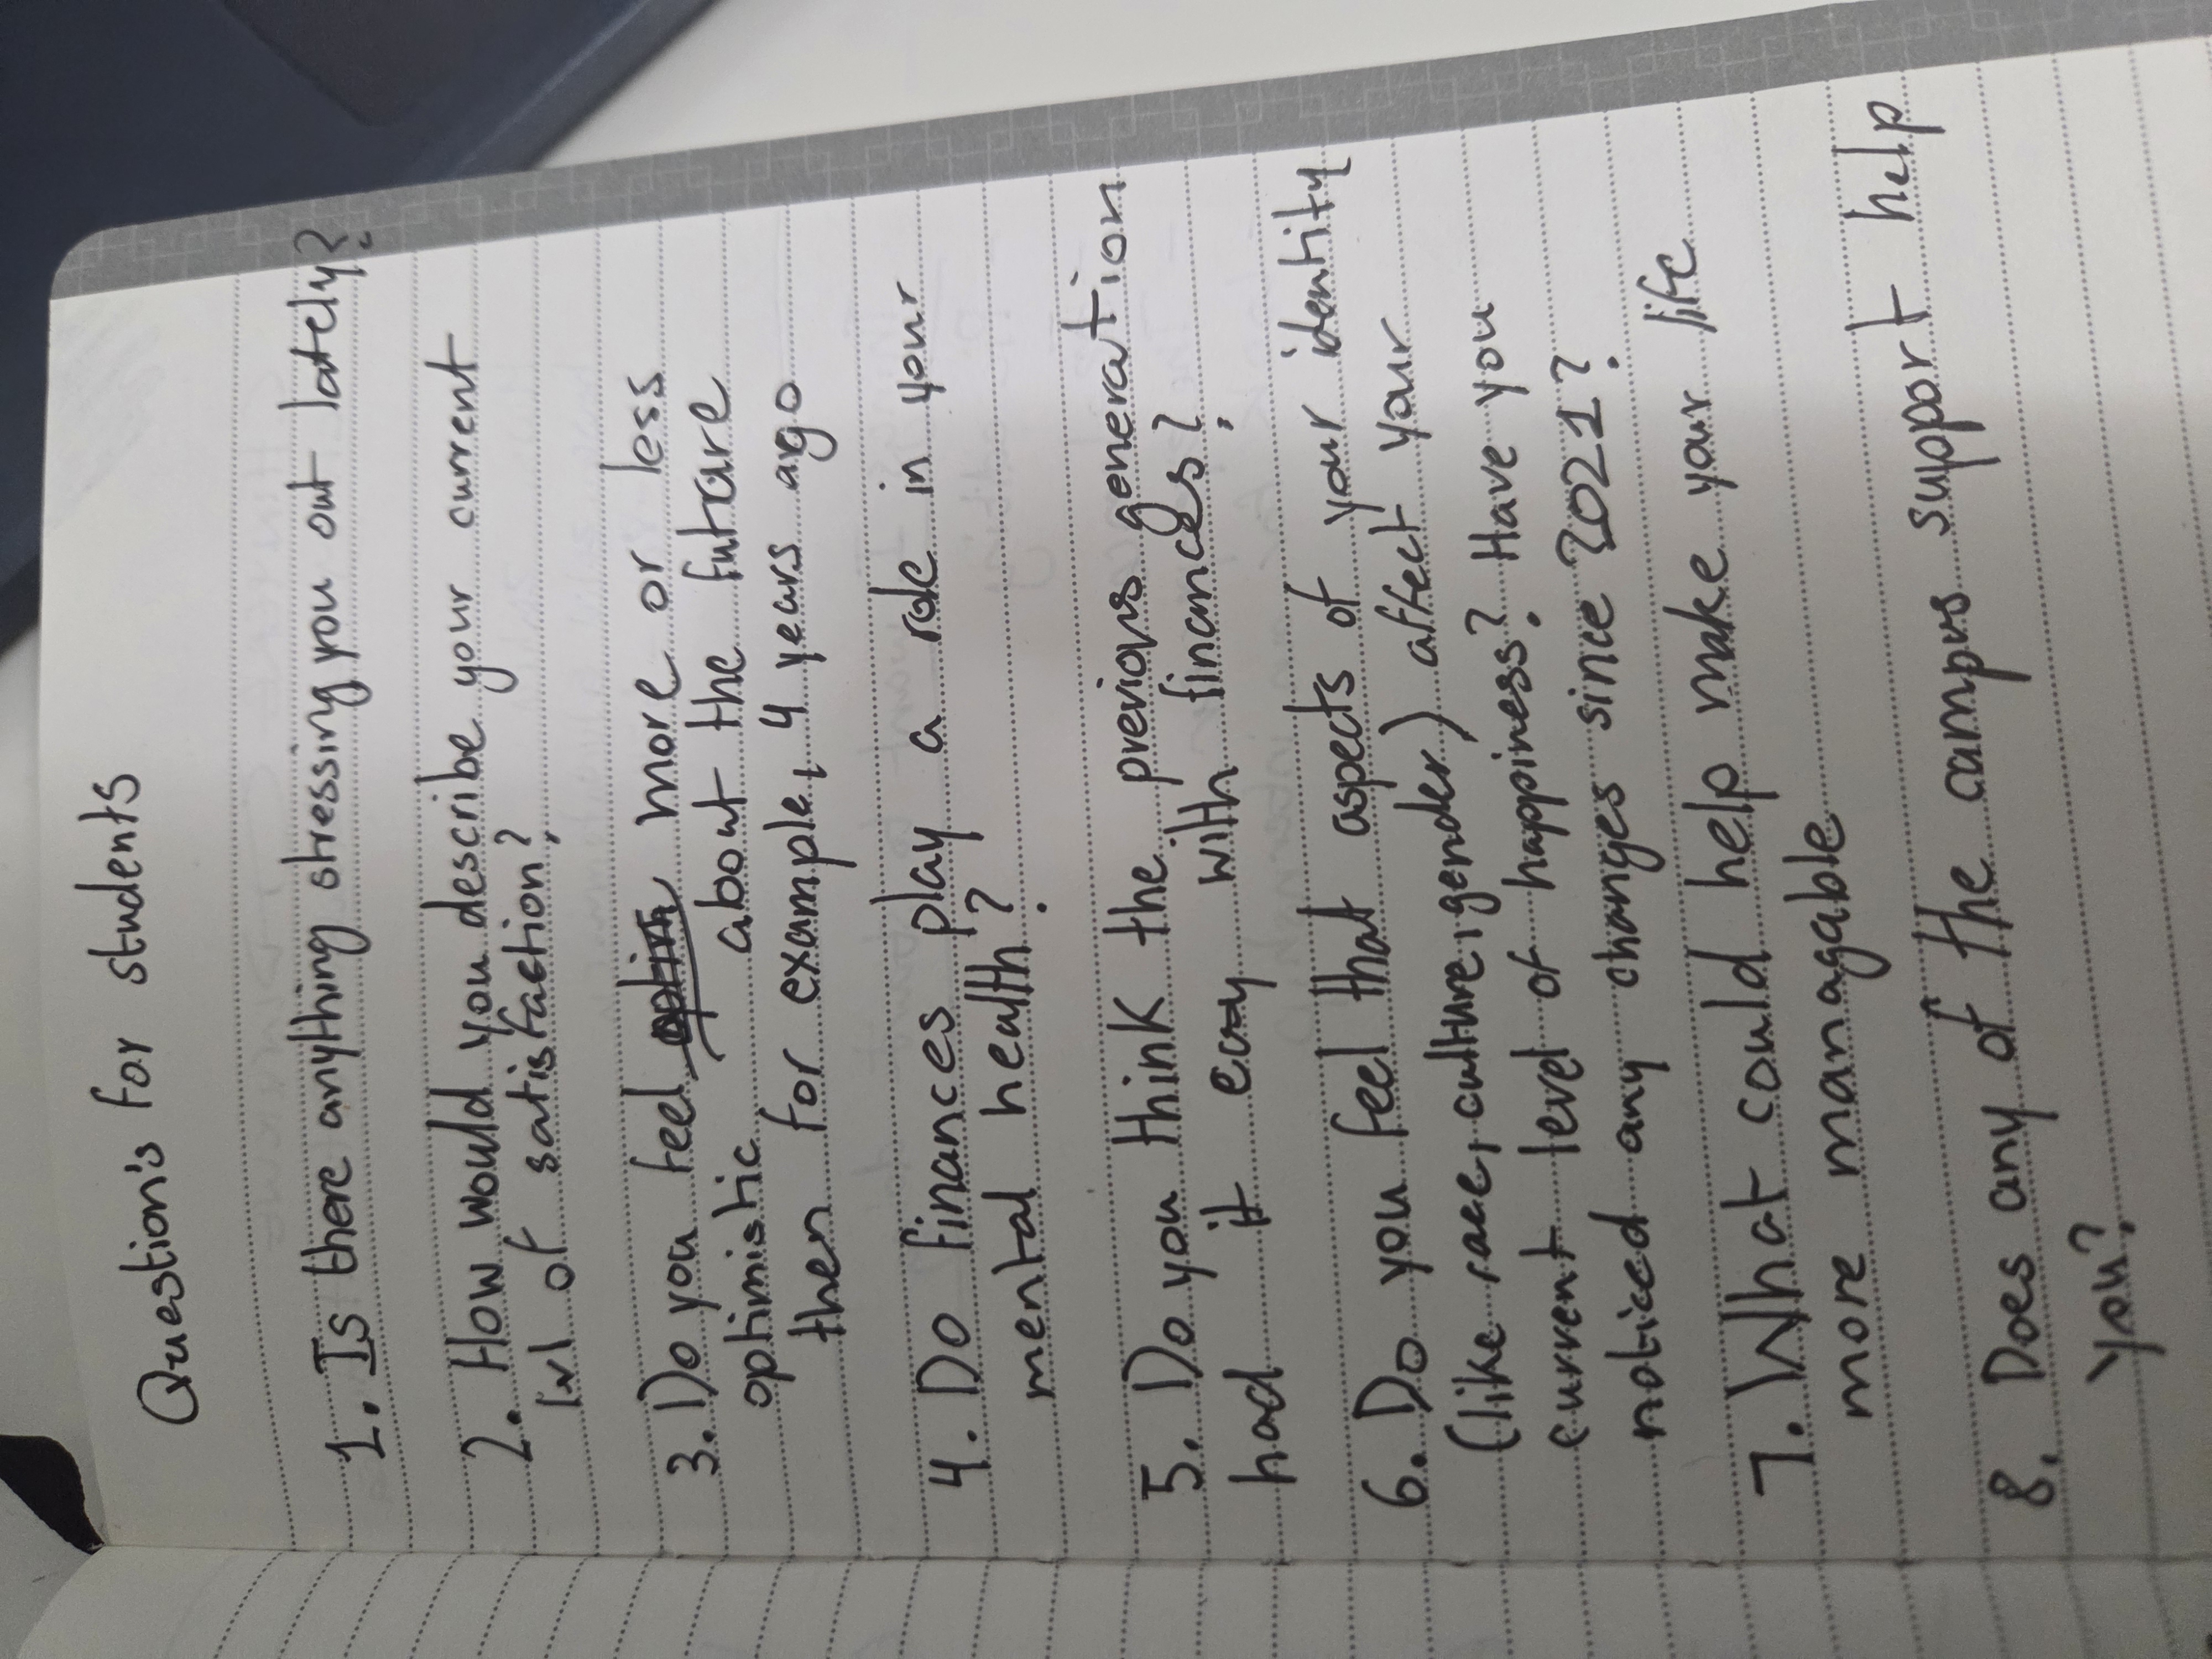 Question's for students
1. Is there anything stressing you out lately?
2. How would you describe your current
lvl of satisfaction?
3. Do you feel more or less
optimistic about the future
then for example, 4 years ago
4. Do finances play a role in your
mental health?
5. Do you think the previous generation
had it easy with finances?
6. Do you feel that aspects of your identity
(like race, culture, gender) affect your
current level of happiness? Have you
noticed any changes since 2021?
7. What could help make your life
more managable
8. Does any of the campus support help
you?